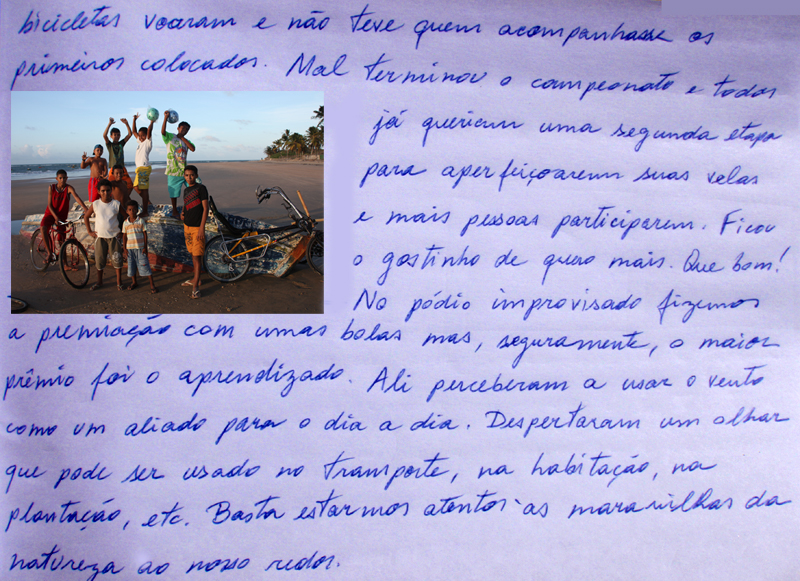 bicicletas voaram e não teve quem acompanhasse os
primeiros colocados. Mal terminou o campeonato e todos
já queriam uma segunda etapa
para aperfeiçoarem suas velas
e mais pessoas participarem. Ficou
o gostinho de quero mais. Que bom!
No pódio improvisado fizemos
a premiação com umas bolas mas, seguramente, o maior
prêmio foi o aprendizado. Ali perceberam a usar o vento
como um aliado para o dia a dia. Despertaram um olhar
que pode ser usado no transporte, na habitação, na
plantação, etc. Basta estarmos atentos às maravilhas da
natureza ao nosso redor.